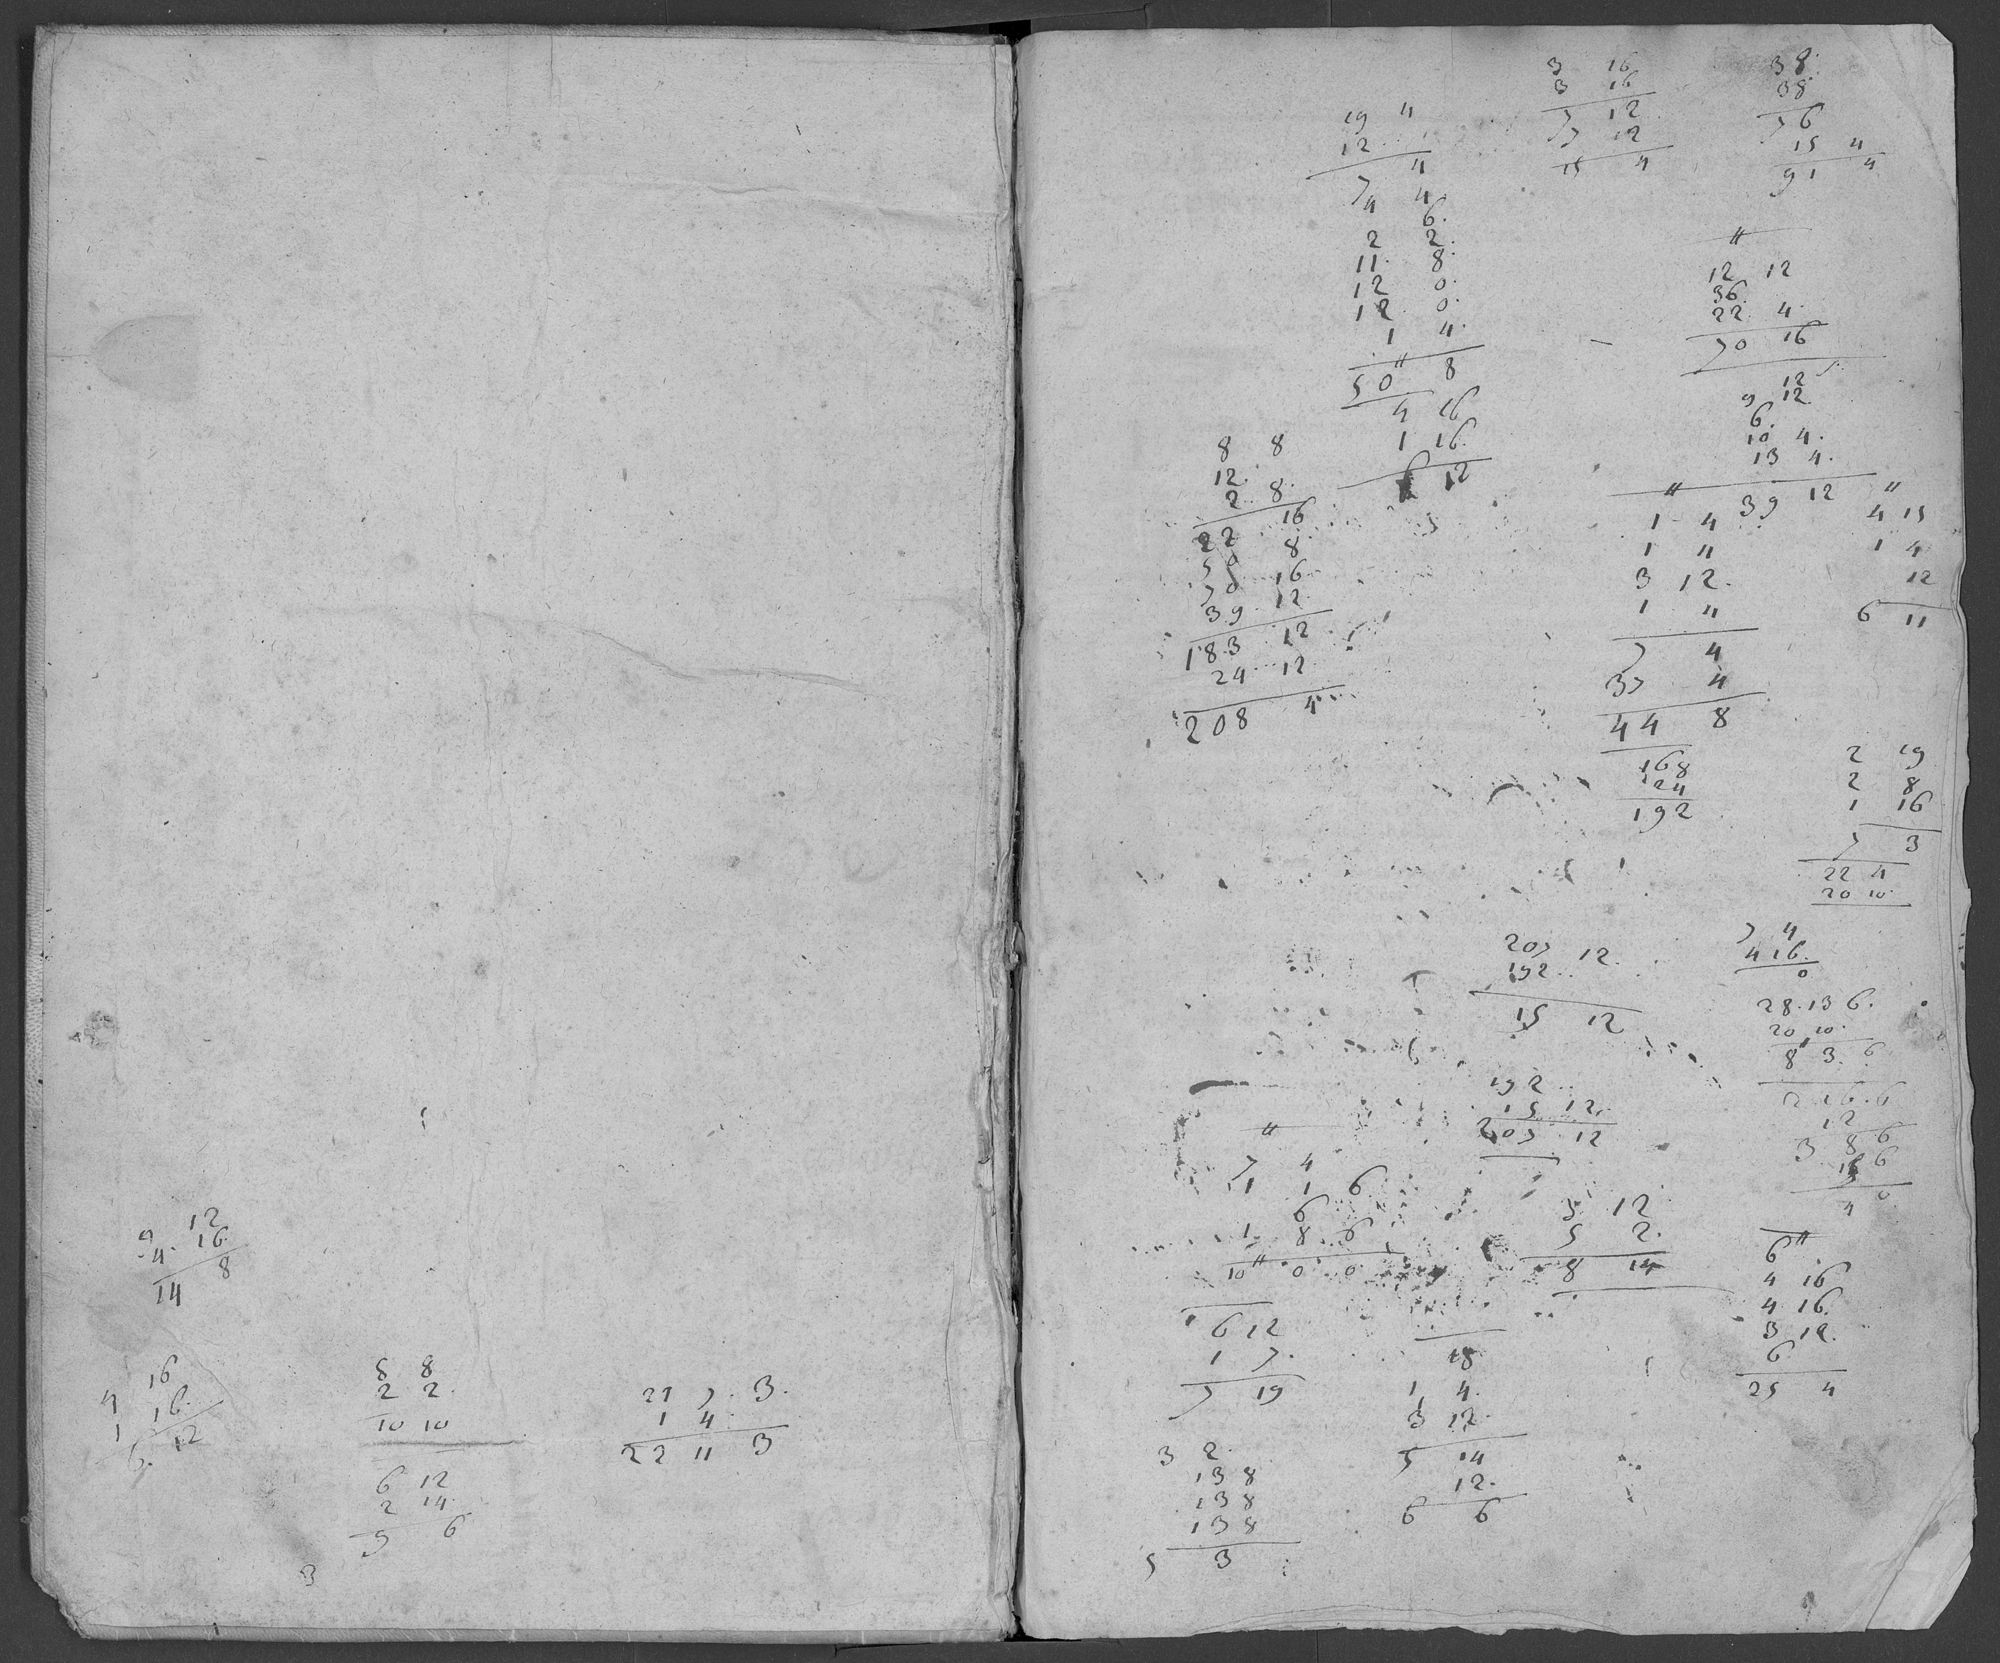 9 12
4 16
14 8
4 16
1 16
6 12
8 8
2 2
10 10
6 12
2 14
9 6
3
21 7 3
1 4
22 11 3
19 4
12
7 4
4 4
6
2 2
11 8
12 0
12 0
1 4
50 8
4 16
1 16
6 12
3 16
3 16
7 12
7 12
15 4
38
38
76
15 4
91 4
12 12
36
22 4
70 16
12
9 12
6
10 4
13 4
39 12
8 8
12
2 8
22 16
50 8
70 16
39 12
183 12
24 12
208 4
1 4
1 4
3 12
1 4
7 4
37 4
44 8
168
24
192
4 15
1 4
12
6 11
2 19
2 8
1 16
7 3
22 4
20 10
207 12
192
15 12
7 4
4 16
0
28 13 6
20 10
8 3 6
2 16 6
12
3 8 6
15 6
4 0
192
15 12
207 12
7 4
1 1 6
6
1 8 6
10 0 0
3 12
5 2
8 14
6
4 16
4 16
3 12
6
25 4
6 12
1 7
7 19
18
1 4
3 12
5 14
12
6 6
3 2
13 8
13 8
13 8
5 3